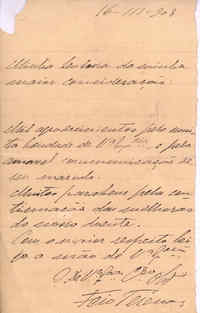 16-III-908
Minha senhora da minha
maior consideração:
Mil agradecimentos pelo
honrosa de V.ª Ex.ª e pela
amavel communicação de
seu marido.
Muitos parabens pela con-
tinuação das melhoras
do nosso doente.
Com o maior respeito bei-
jo a mão de V.ª Ex.ª
Feio Terenas